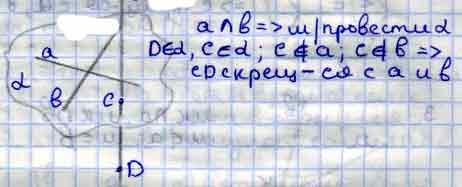 a∩b => м/провести α
D∈α, C∈α; C∉a; C∉b =>
CD скрещ-ся с a и b
a
α
b
C
D